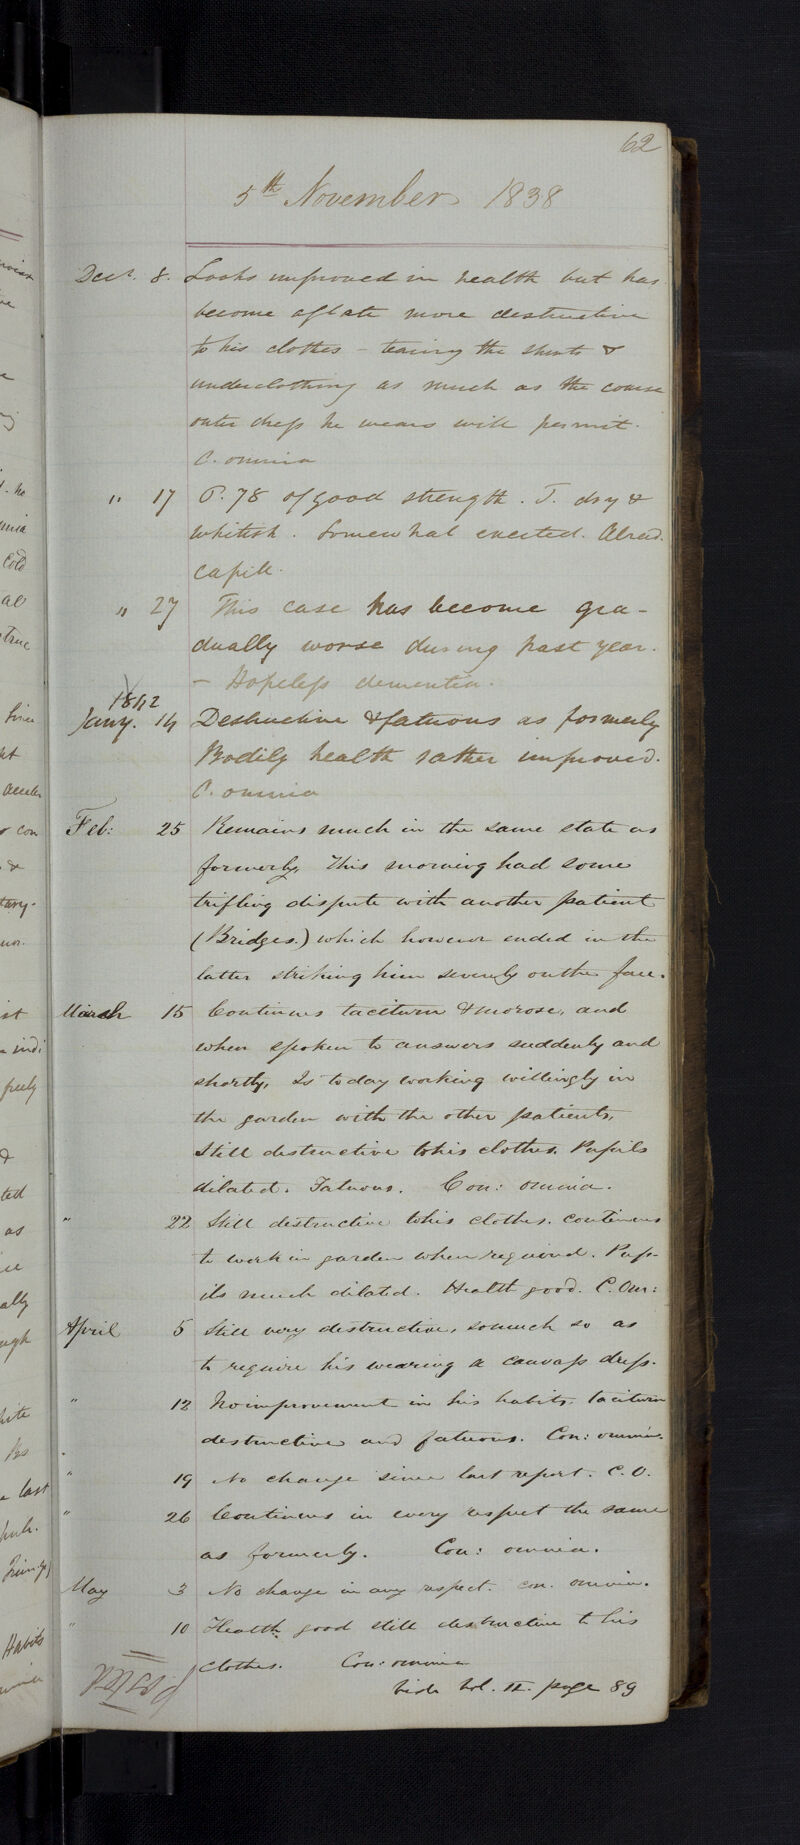 62
5th November 1838
Decr. 8. Looks improved in health but has
become of late more destructive
to his clothes – tearing the shirts &
underclothing as much as the coarse
outer dress he wears will permit.
C. omnia
" 17 P. 78 of good strength. T. dry &
whitish. Somewhat excited. Abrad.
capill.
" 27 This case has become gra-
dually worse during past year.
– Hopeless dementia.
1842
Jany. 14 Destructive & fatuous as formerly
Bodily health rather improved.
C. omnia
Feb: 25 Remains much in the same state as
formerly. This morning had some
trifling dispute with another patient
(Bridges.) which however ended in the
latter striking him severely on the face.
March 15 Continues taciturn & morose, and
when spoken to answers suddenly and
shortly, Is to day working willingly in
the garden with the other patients,
Still destructive to his clothes. Pupils
dilated. Fatuous. Con: omnia.
" 22 Still destructive to his clothes. continues
to work in garden when required. Pup-
ils much dilated. Health good. C. Om:
April 5 Still very destructive, so much so as
to require his wearing a canvass dress.
" 12 No improvement in his habits. taciturn
destructive and fatuous. Con: omnia.
" 19 No change since last report. C. O.
" 26 Continues in every respect the same
as formerly. Con: omnia.
May 3 No change in any respect. con. omnia.
" 10 Health good still destructive to his
clothes. Con: omnia
Vide Vol. II. page 89
Posted